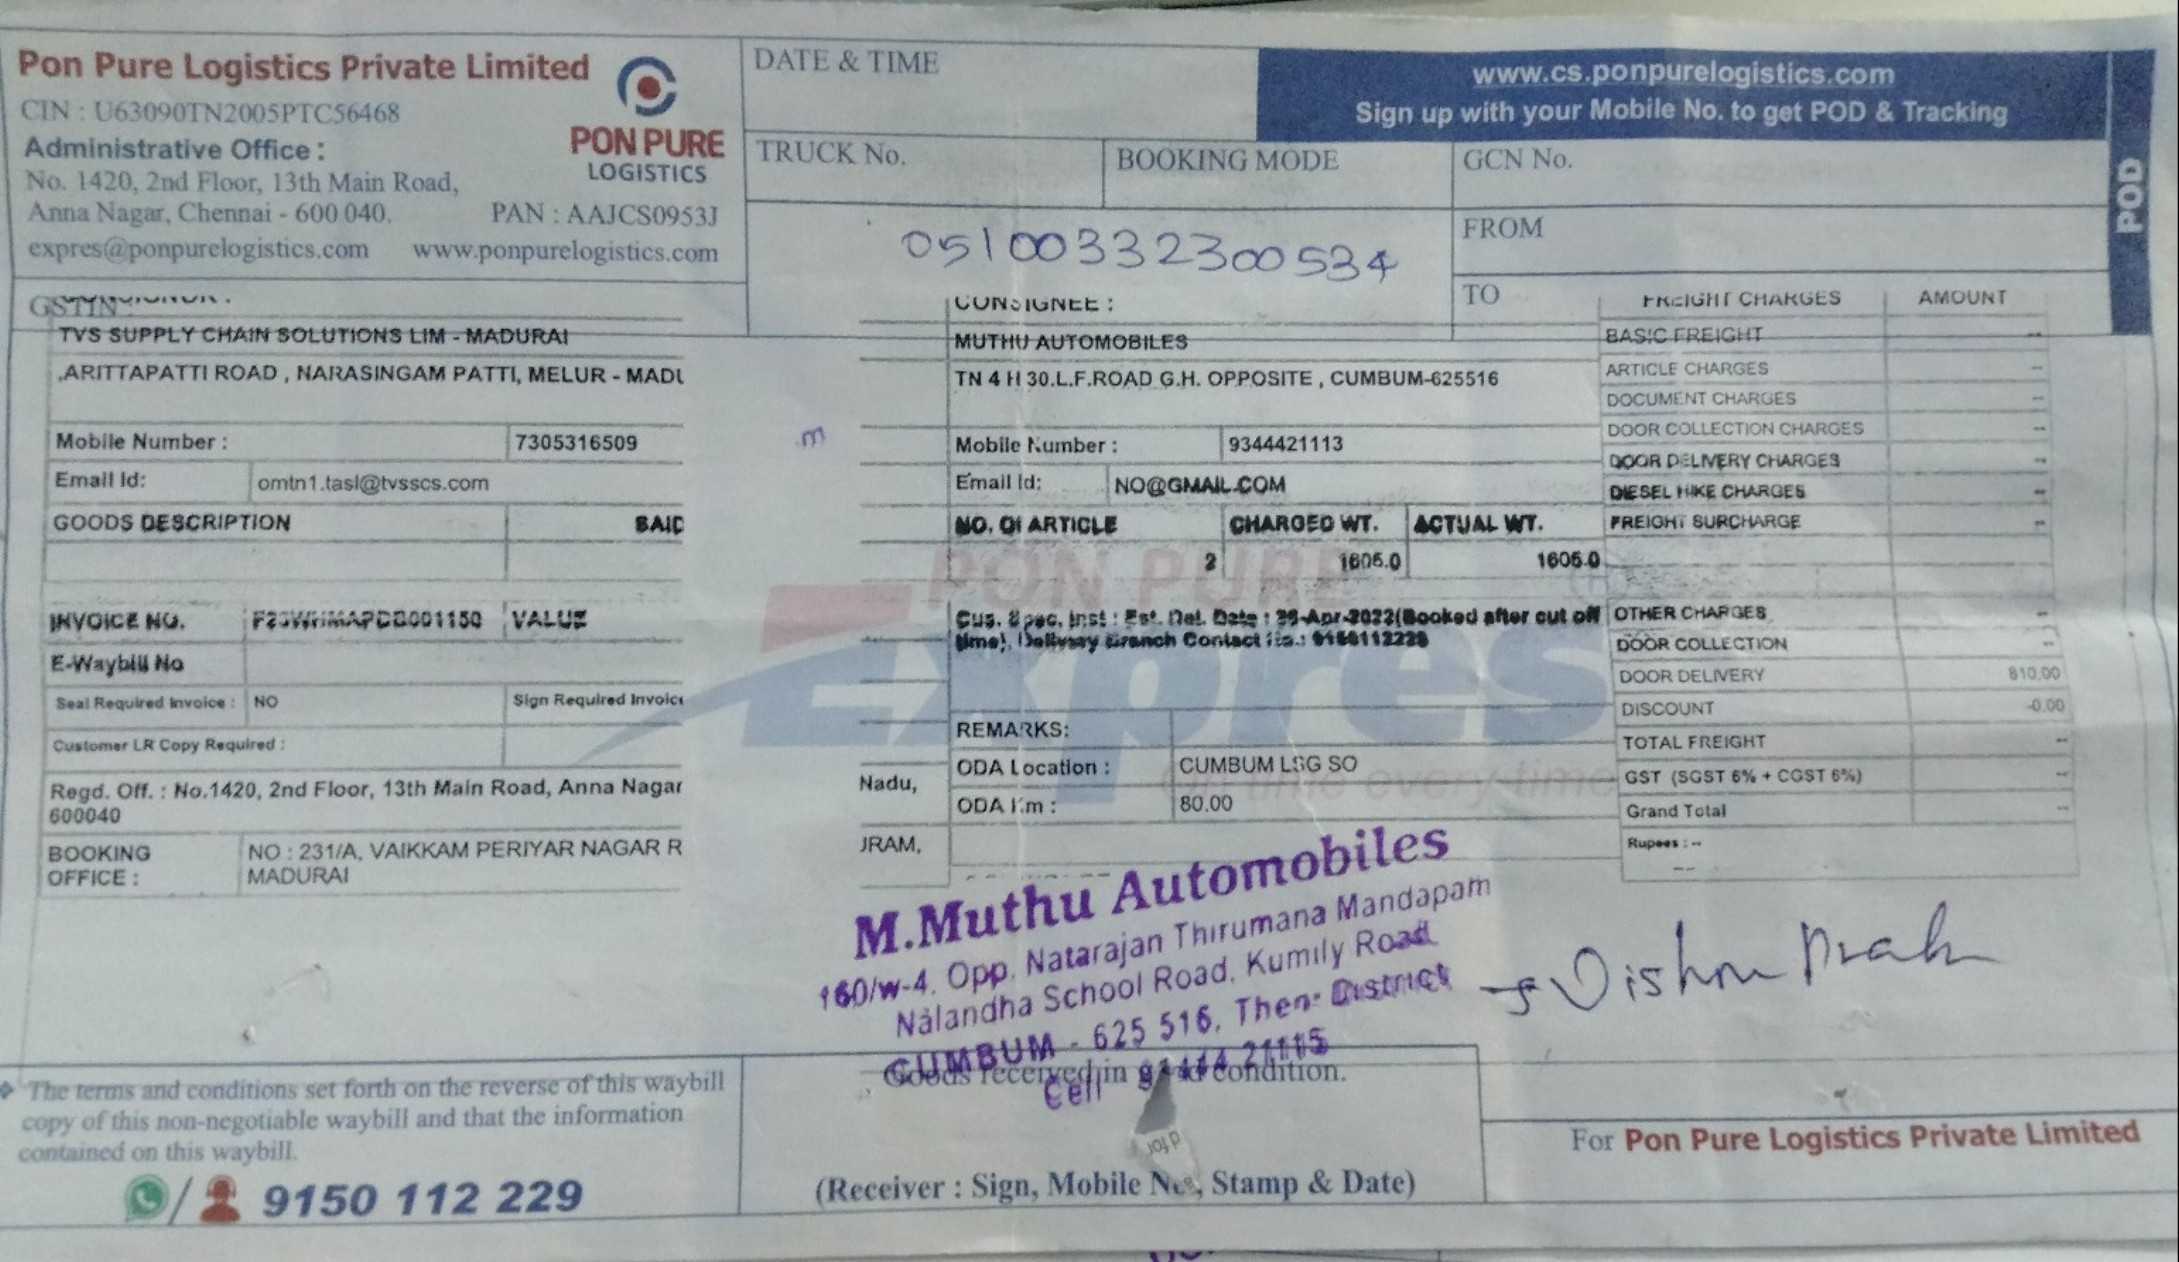 Pon Pure Logistics Private Limited
CIN : U63090TN2005PTC56468
Administrative Office :
No. 1420, 2nd Floor, 13th Main Road,
Anna Nagar, Chennai - 600 040.
PAN : AAJCS0953J
expres@ponpurelogistics.com www.ponpurelogistics.com
PON PURE
LOGISTICS
GSTIN
DATE & TIME
www.cs.ponpurelogistics.com
Sign up with your Mobile No. to get POD & Tracking
POD
TRUCK No.
BOOKING MODE
GCN No.
FROM
TO
05100332300534
TVS SUPPLY CHAIN SOLUTIONS LIM - MADURAI
,ARITTAPATTI ROAD , NARASINGAM PATTI, MELUR - MADU
Mobile Number : 7305316509
Email Id: omtn1.tasl@tvsscs.com
GOODS DESCRIPTION SAID
INVOICE NO. VALUE
E-Waybill No
Seal Required Invoice : NO Sign Required Invoice
Customer LR Copy Required :
Regd. Off. : No.1420, 2nd Floor, 13th Main Road, Anna Nagar
600040
Nadu,
BOOKING OFFICE : NO : 231/A, VAIKKAM PERIYAR NAGAR R
MADURAI
URAM,
CONSIGNEE :
MUTHU AUTOMOBILES
TN 4 H 30.L.F.ROAD G.H. OPPOSITE , CUMBUM-625516
Mobile Number : 9344421113
Email Id: NO@GMAIL.COM
NO. OF ARTICLE CHARGED WT. ACTUAL WT.
2 1605.0 1605.0
Cus. Spec. Inst : Est. Del. Date : (Booked after cut off
time), Delivery Branch Contact No.:
REMARKS:
ODA Location : CUMBUM LSG SO
ODA Km : 80.00
PON PURE
Expres
On time every time
FREIGHT CHARGES AMOUNT
BASIC FREIGHT --
ARTICLE CHARGES --
DOCUMENT CHARGES --
DOOR COLLECTION CHARGES --
DOOR DELIVERY CHARGES --
DIESEL HIKE CHARGES --
FREIGHT SURCHARGE --
OTHER CHARGES --
DOOR COLLECTION --
DOOR DELIVERY 810.00
DISCOUNT -0.00
TOTAL FREIGHT --
GST (SGST 6% + CGST 6%) --
Grand Total --
Rupees : --
--
M.Muthu Automobiles
160/w-4, Opp. Natarajan Thirumana Mandapam
Nalandha School Road, Kumily Road
CUMBUM - 625 516, Theni District
Cell
Goods received in good condition.
(Receiver : Sign, Mobile No., Stamp & Date)
The terms and conditions set forth on the reverse of this waybill
copy of this non-negotiable waybill and that the information
contained on this waybill.
9150 112 229
For Pon Pure Logistics Private Limited